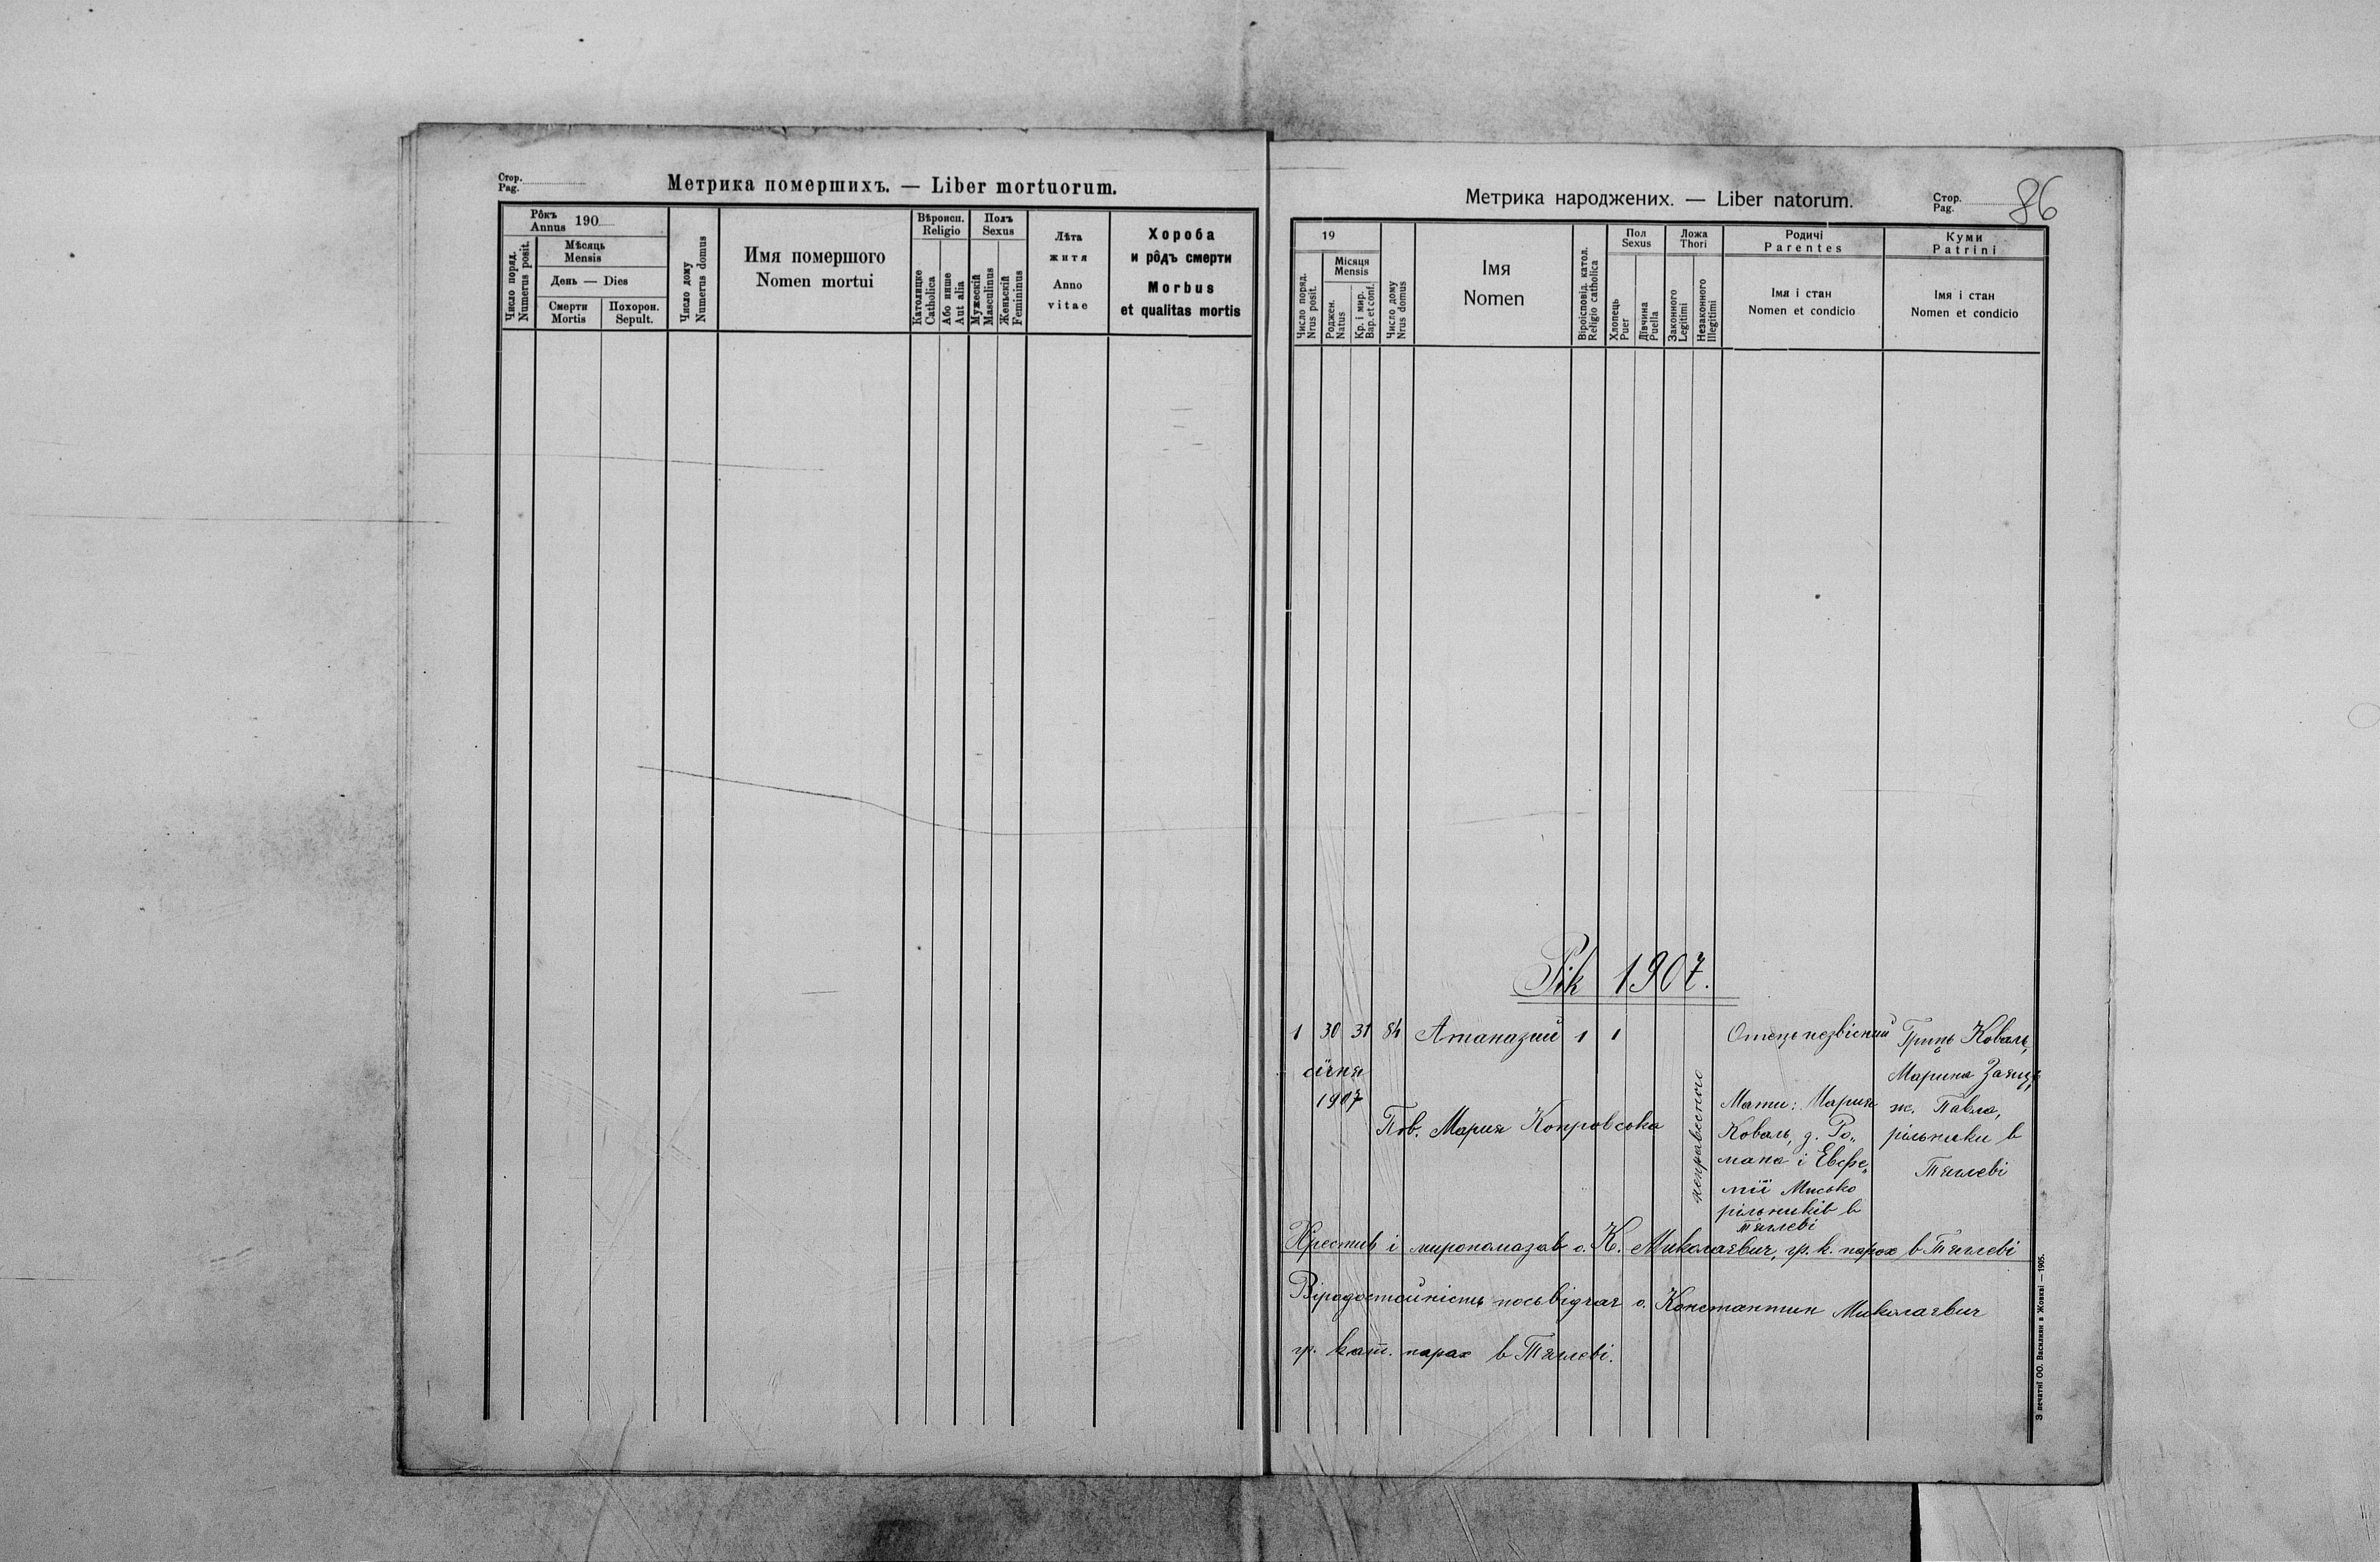 Стор.
Pag.
Метрика померших. — Liber mortuorum.
Рôкъ
Annus 190
Число поряд.
Numerus posit.
Мѣсяць
Mensis
День — Dies
Смерти
Mortis
Похорон.
Sepult.
Число дому
Numerus domus
Имя помершого
Nomen mortui
Вѣроисп.
Religio
Католицке
Catholica
Або инше
Aut alia
Полъ
Sexus
Мужескій
Masculinus
Женьскій
Femininus
Лѣта
житя
Anno
vitae
Хороба
и рôдъ смерти
Morbus
et qualitas mortis
Метрика народжених. — Liber natorum.
Стор.
Pag.
86
19
Число поряд.
Nrus posit.
Місяця
Mensis
Роджен.
Natus
Кр. і мир.
Bap. et conf.
Число дому
Nrus domus
Імя
Nomen
Віроісповід. катол.
Religio catholica
Пол
Sexus
Хлопець
Puer
Дївчина
Puella
Ложа
Thori
Законного
Legitimi
Незаконного
Illegitimi
Родичі
Parentes
Імя і стан
Nomen et condicio
Куми
Patrini
Імя і стан
Nomen et condicio
Рік 1907.
1 30 31 84 Атаназий 1 1 Отець незвісний Гринь Коваль,
січня Марина Заяць,
1907 Мати: Мария ж. Павла,
Пов. Мария Копровска Коваль, д. Ро„ рільники в
неправесного
мана і Евфе„ Тяглеві
мії Мисько
рільників в
Тяглеві
Хрестив і миропомазав о. К. Миколаєвич, гр. к. парох в Тяглеві
Вірадостойність посьвідчає о. Константин Миколаєвич
гр. кат. парах в Тяглеві.
З печатнї ОО. Василиян в Жовкві — 1905.